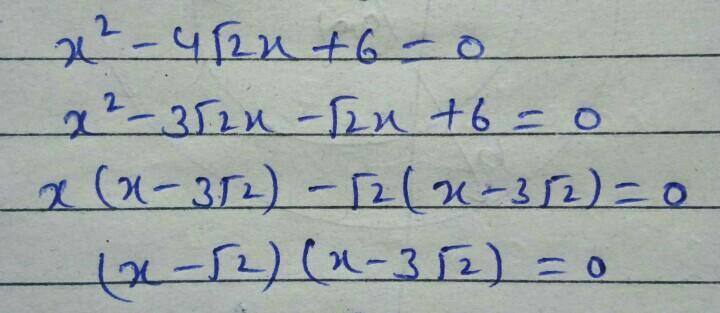 x² - 4√2x + 6 = 0
x² - 3√2x - √2x + 6 = 0
x (x - 3√2) - √2 (x - 3√2) = 0
(x - √2) (x - 3√2) = 0